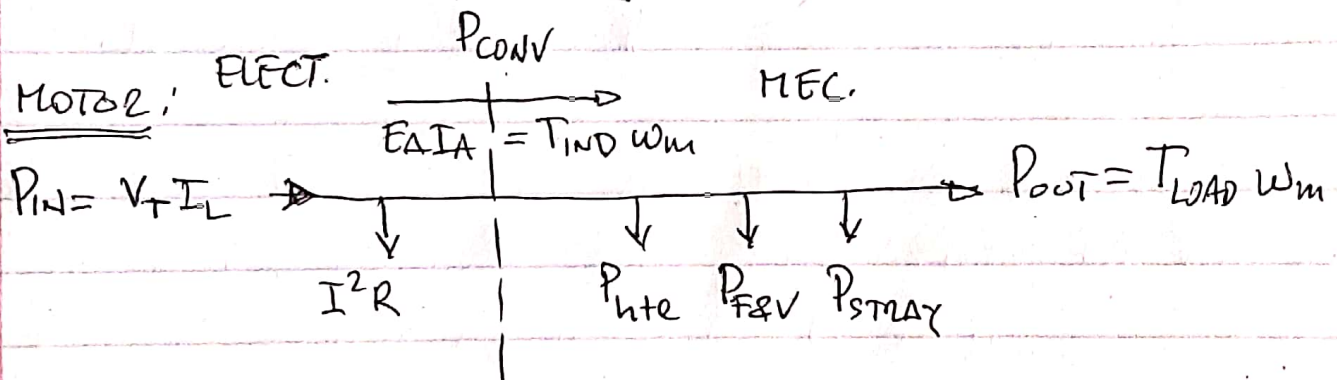 PCONV
MOTOR: ELECT. MEC.
EAIA = TIND ωm
PIN = VT IL POUT = TLOAD ωm
I²R Ph+e PF&V PSTRAY